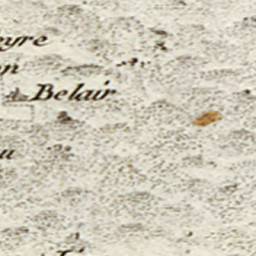 eyre
on
Belair
u